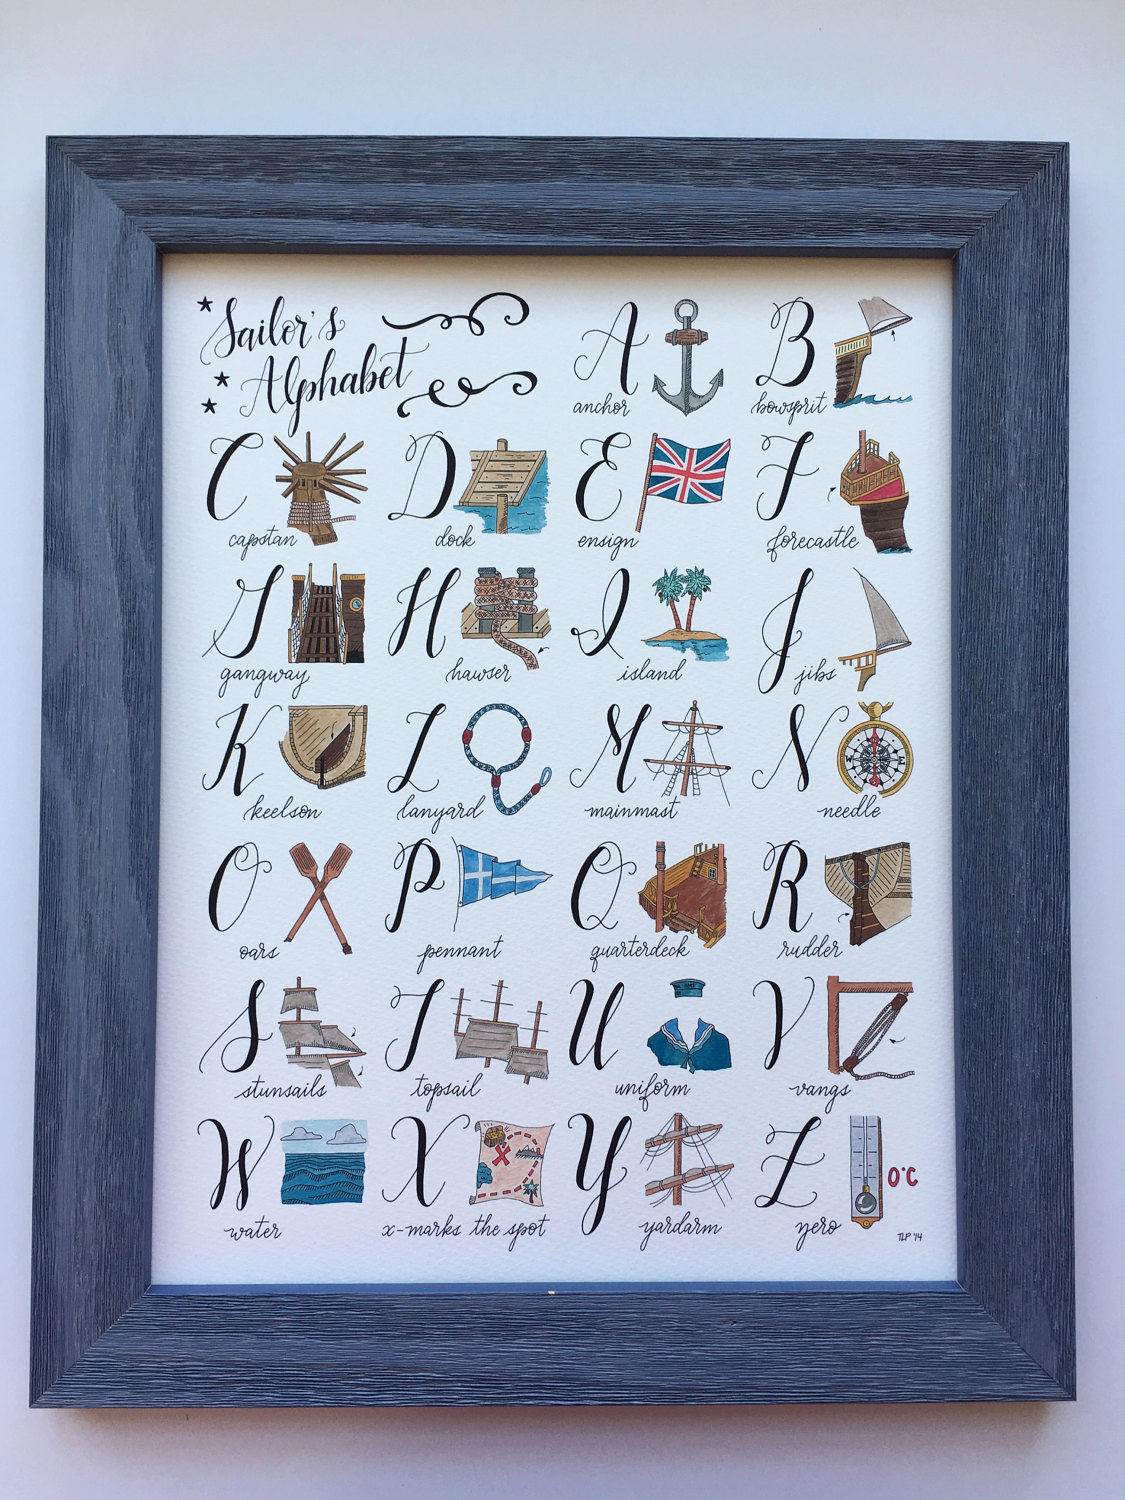 Sailor's
Alphabet
A
anchor
B
bowsprit
C
capstan
D
dock
E
ensign
F
forecastle
G
gangway
H
hawser
I
island
J
jibs
K
keelson
L
lanyard
M
mainmast
N
needle
O
oars
P
pennant
Q
quarterdeck
R
rudder
S
stunsails
T
topsail
U
uniform
V
vangs
W
water
X
x-marks the spot
Y
yardarm
Z
zero
0°C
TLP '14